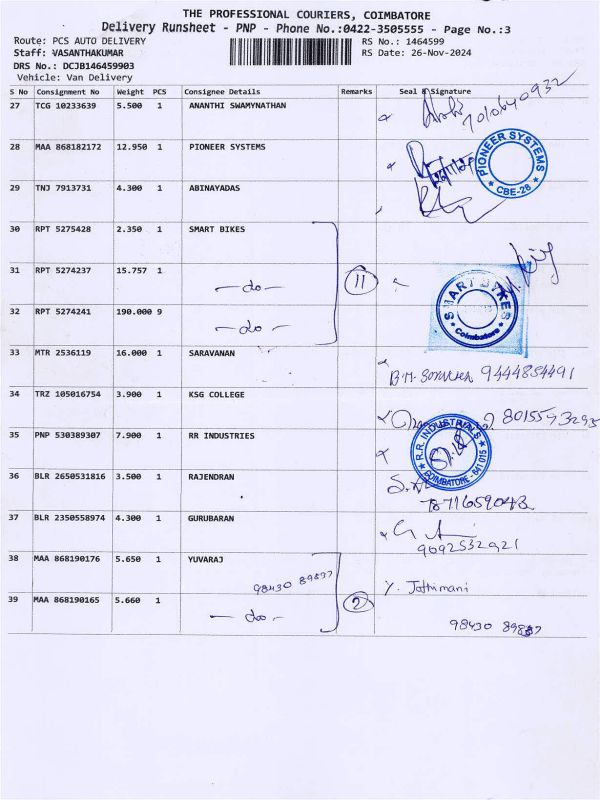 THE PROFESSIONAL COURIERS, COIMBATORE
Delivery Runsheet - PNP - Phone No.:0422-3505555 - Page No.:3
Route: PCS AUTO DELIVERY RS No.: 1464599
Staff: VASANTHAKUMAR RS Date: 26-Nov-2024
DRS No.: DCJB146459903
Vehicle: Van Delivery
S No Consignment No Weight PCS Consignee Details Remarks Seal & Signature
27 TCG 10233639 5.500 1 ANANTHI SWAMYNATHAN 7010640932
28 MAA 868182172 12.950 1 PIONEER SYSTEMS PIONEER SYSTEMS CBE-26
29 TNJ 7913731 4.300 1 ABINAYADAS
30 RPT 5275428 2.350 1 SMART BIKES
31 RPT 5274237 15.757 1 - do - 11 SMART BYKES Coimbatore
32 RPT 5274241 190.000 9 - do -
33 MTR 2536119 16.000 1 SARAVANAN 9444854491
34 TRZ 105016754 3.900 1 KSG COLLEGE 8015593295
35 PNP 530389307 7.900 1 RR INDUSTRIES R.R. INDUSTRIALS COIMBATORE - 641 015
36 BLR 2650531816 3.500 1 RAJENDRAN
37 BLR 2350558974 4.300 1 GURUBARAN 9092532921
38 MAA 868190176 5.650 1 YUVARAJ 98430 89837 Y. Jothimani
39 MAA 868190165 5.660 1 - do - 2 98430 89837